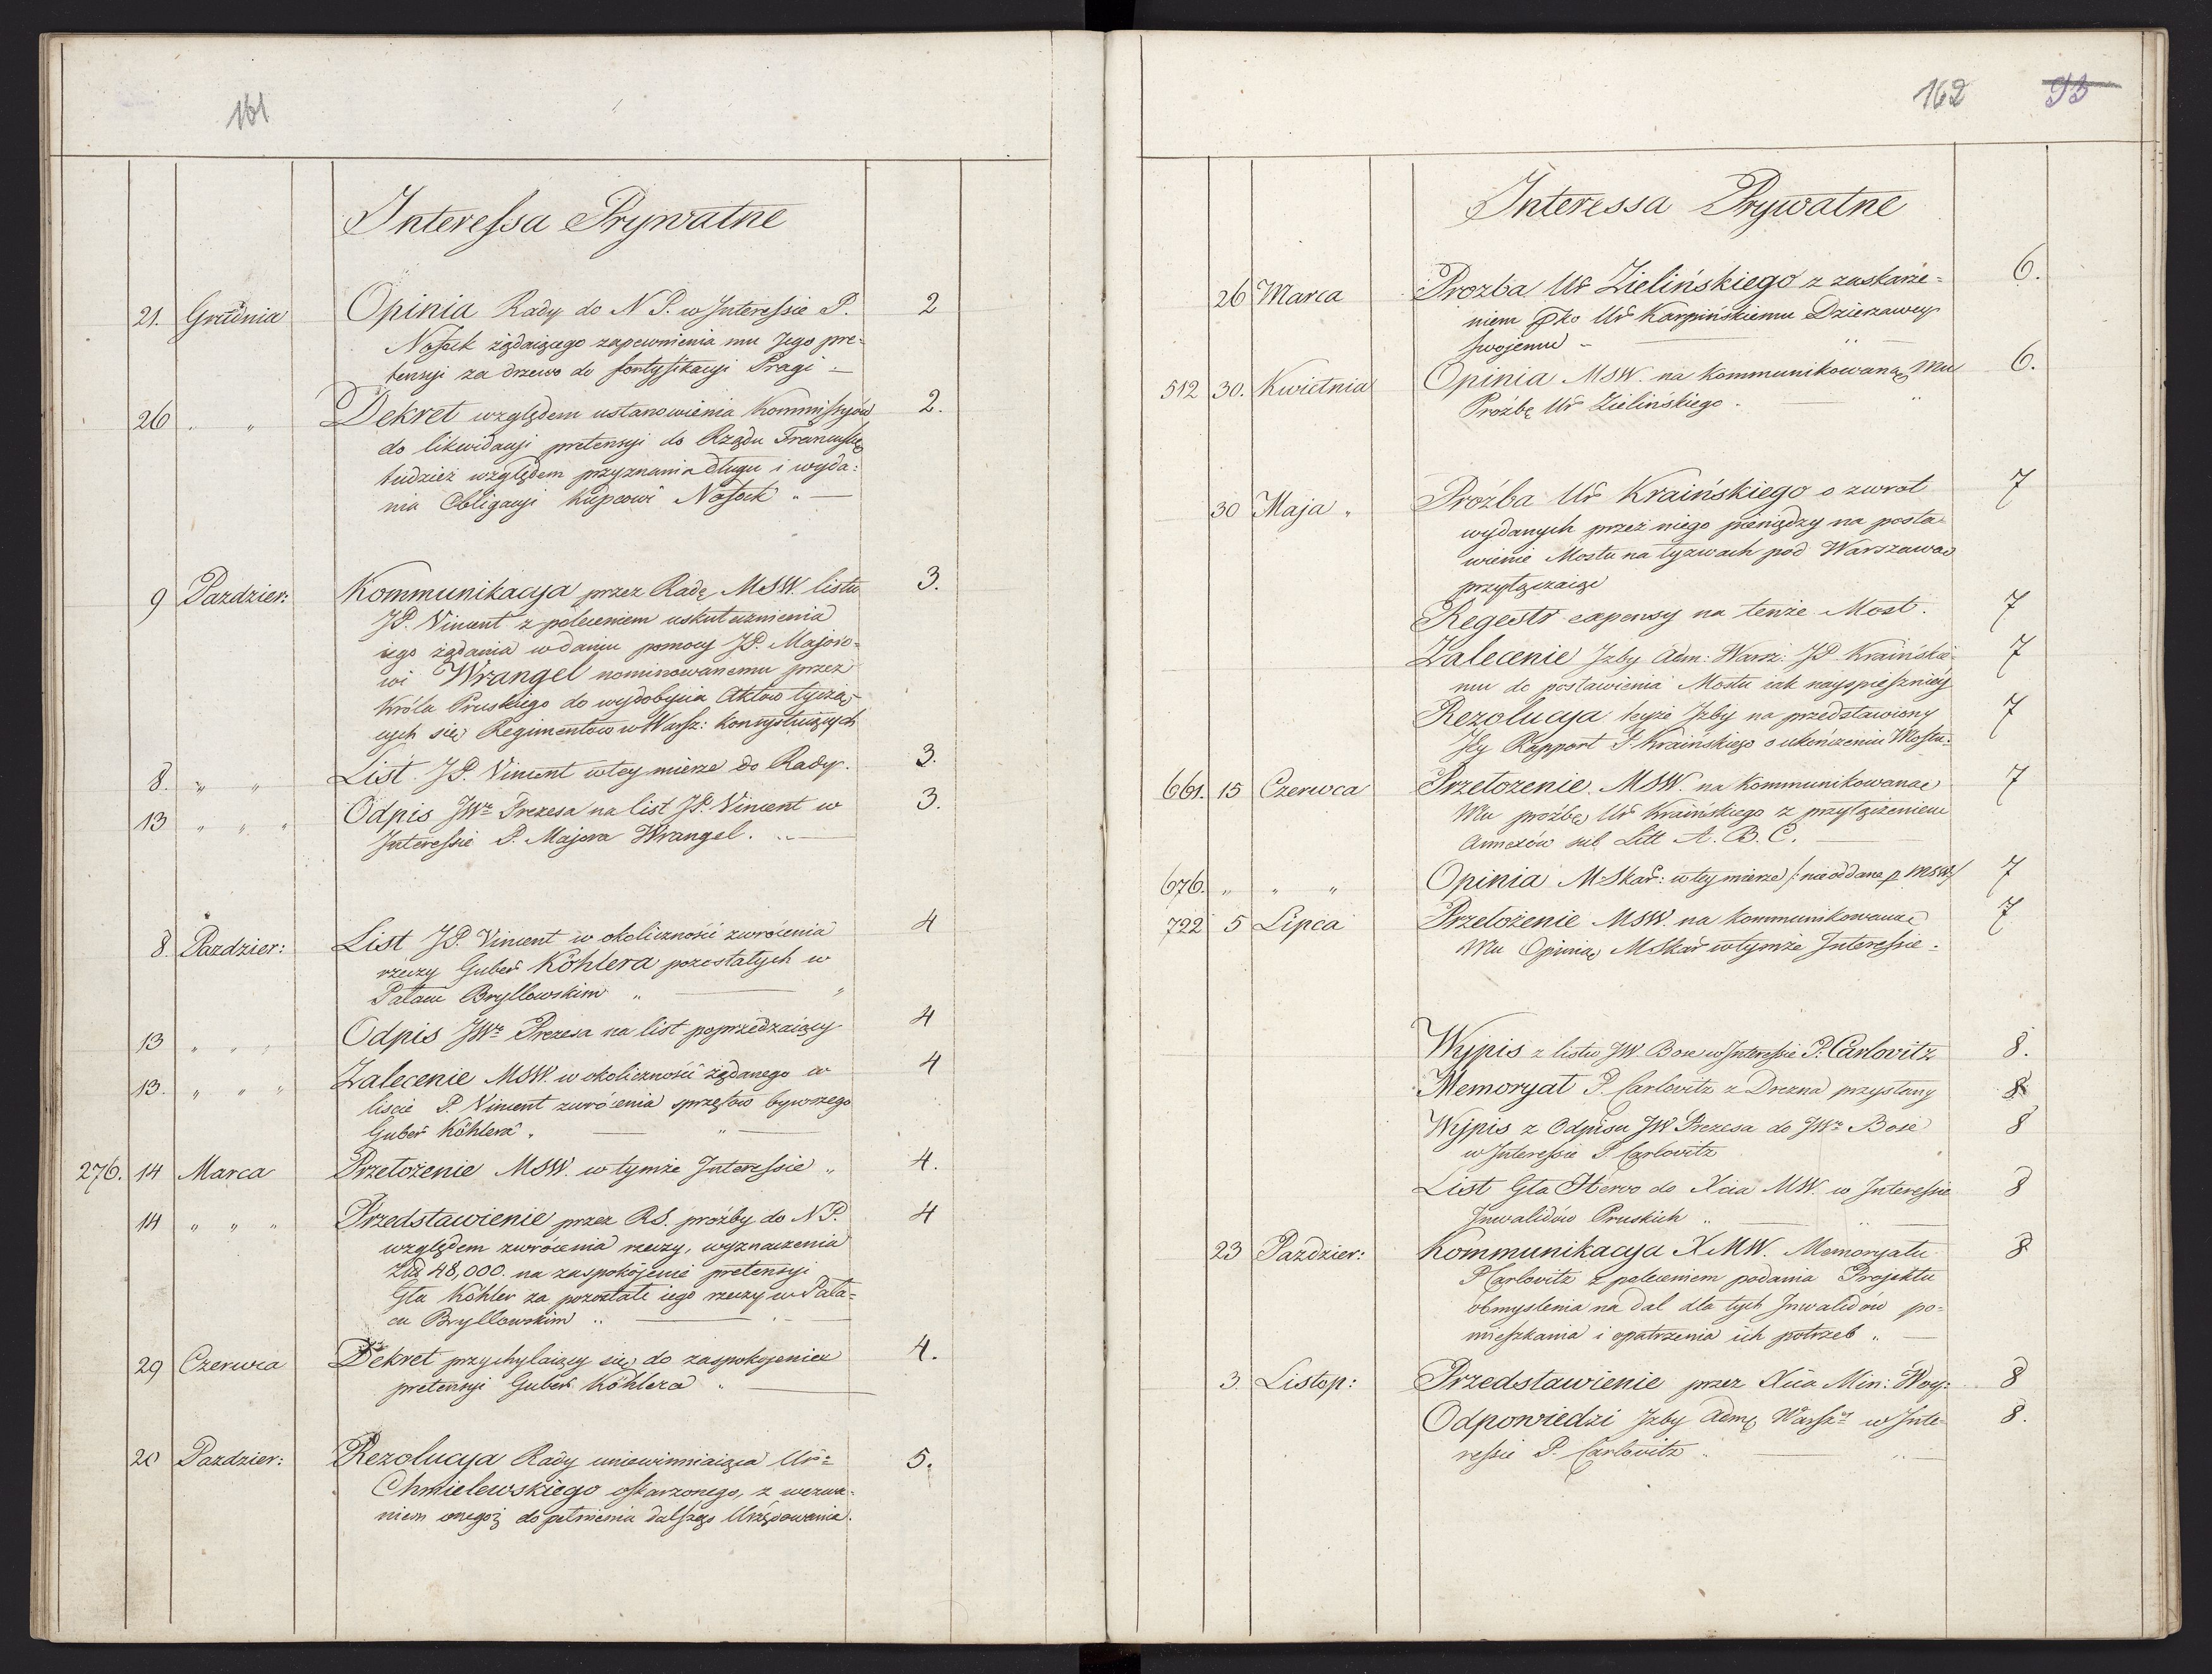 161
Interessa Prywatne
21. Grudnia Opinia Rady do N P. w Interessie P. 2
Nossek żądaiącego zapewnienia mu Jego pre-
tensyi za drzewo do fortyfikacyi Pragi
26 " " Dekret względem ustanowienia Kommissyów 2.
do likwidacyi pretensyi do Rządu Francuskię
tudzież względem przyznania długu i wyda:
nia Obligacyi kupcowi Nossek "
9 Pazdzier: Kommunikacya przez Radę MSW. listu 3.
JP. Vincent z poleceniem uskutecznienia
tego żądania w daniu pomocy JP. Majoro-
wi Wrangel nominowanemu przez
Króla Pruskiego do wydobycia Aktów tyczą-
cych się Regimentów w Warsz: konsystuiących
8. " " List JP. Vincent w tey mierze do Rady. 3.
13 " " " Odpis JWo Prezesa na list JP. Vincent w 3.
Interessie P. Majora Wrangel.
8. Pazdzier: List JP. Vincent w okoliczności zwrócenia 4
rzeczy Guber Köhlera pozostałych w
Pałacu Bryllowskim "
13 " " " Odpis JWo Prezesa na list poprzedzaiący 4
13. " " " Zalecenie MSW. w okoliczności żądanego w 4
liscie P. Vincent zwrócenia sprzętów bywszego
Guber Köhlera "
276. 14 Marca Przełożenie MSW. w tymże Interessie " 4.
14 " " " Przedstawienie przez RS. prożby do NP. 4
względem zwrócenia rzeczy, wyznaczenia
Złł 48,000. na zaspokojenie pretensyi
Gła Köhler za pozostałe iego rzeczy w Pała=
cu Bryllowskim "
29 Czerwca Dekret przychylaiący się do zaspokojenia 4.
pretensyi Guber Köhlera "
20 Pazdzier: Rezolucya Rady uniewinniaiąca Ur= 5.
Chmielewskiego oskarzonego, z wezwa-
niem onegoż do pełnienia dalszego Urzędowania.
162 93
Interessa Prywatne
26 Marca Prozba Ur Zielińskiego z zaskarże= 6.
niem pko Ur Karpińskiemu Dzierzawcy
swojemu -
512 30. Kwietnia Opinia MSW. na kommunikowaną Mu 6.
Prożbę Ur Zielińskiego.
30 Maja " Prożba Ur Kraińskiego o zwrot 7
wydanych przez niego pieniędzy na posta-
wienie Mostu na łyzwach pod Warszawą
przyłączaiąc
Regestr expensy na tenże Most. 7
Zalecenie Izby Adm: Warsz. JP Kraińskie- 7
mu do postawienia Mostu iak nayspieszniey
Rezolucya teyże Izby na przedstawiony 7
Jey Rapport P. Kraińskiego o ukończeniu Mostu.
661. 15 Czerwca Przełożenie MSW. na kommunikowaną 7
Mu proźbę Ur Kraińskiego z przyłączeniem
Annexów sub Litt A. B. C.
676. " " " Opinia MSkar: w tey mierze /: nieoddana p MSW:/ 7
722 5 Lipca Przełożenie MSW. na kommunikowaną 7
Mu Opinią MSkar w tymże Interessie.
Wypis z listu JW Bose w Interessie P. Carlovitz 8.
Memoryał P. Carlovitz z Drezna przysłany 8
Wypis z Odpisu JW Prezesa do JWo Bose 8
w Interessie P Carlovitz
List Gła Hervo do Xcia MW. w Interessie 8
Inwalidów Pruskich "
23 Pazdzier: Kommunikacya XMW. Memoryału 8
P Carlovitz z poleceniem podania Projektu
obmyslenia na dal dla tych Inwalidów po=
mieszkania i opatrzenia ich potrzeb "
3. Listop: Przedstawienie przez Xcia Min: Woy: 8
Odpowiedzi Izby Adm Warsz w Inte- 8.
ressie P. Carlovitz "